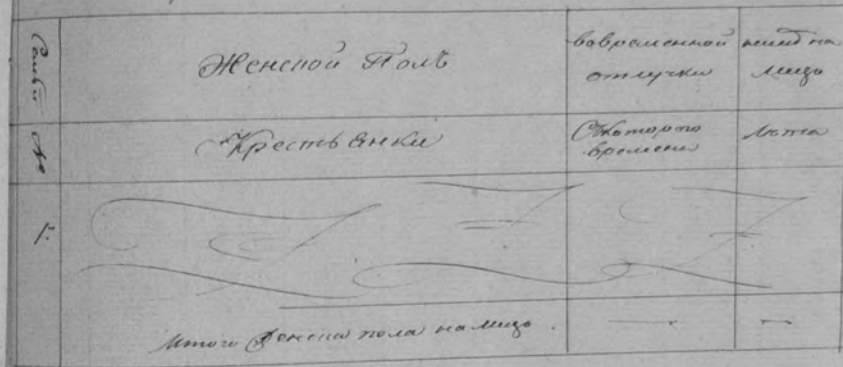 Женской Полъ
вовременной
отлучки
ныне на
лицо
№
Крестьянки
Скоторого
времени
лѣта
1.
Итого Женска пола налицо.